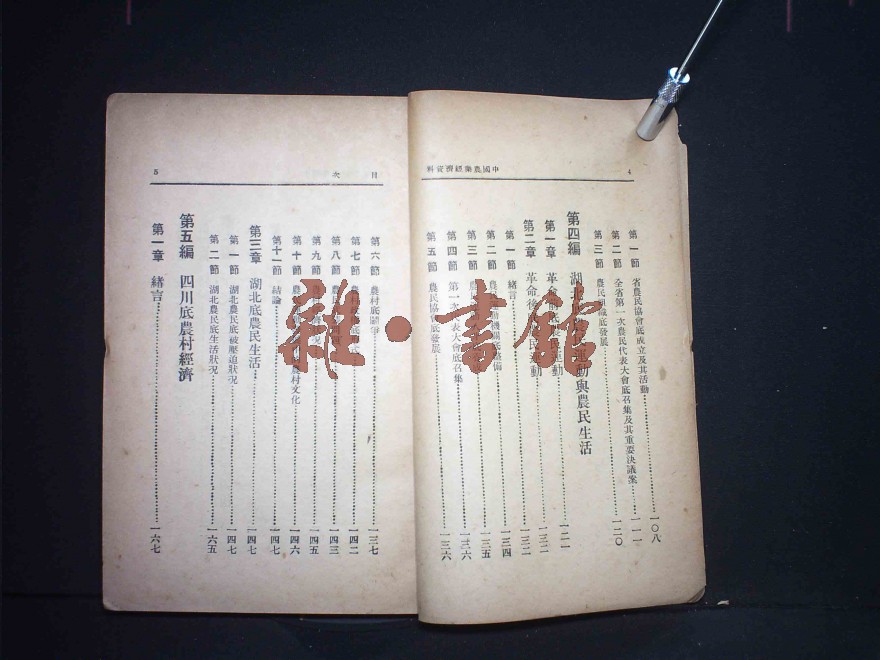 4
中國農業經濟資料
第一節 省農民協會底成立及其活動 一〇八
第二節 全省第一次農民代表大會底召集及其重要決議案 一一一
第三節 農民組織底發展 一二〇
第四編 湖北 農民運動與農民生活
第一章 革命前底農民運動 一二一
第二章 革命後 農民運動 一三二
第一節 緒言 一三二
第二節 農民 一三四
第三節 農民 一三五
第四節 第一次 代表大會底召集 一三六
第五節 農民協會底發展 一三六
目次
5
第六節 農村底 一三七
第七節 農村 一四二
第八節 農民 一四三
第九節 農 一四五
第十節 農 農村文化 一四六
第十一節 結論 一四七
第三章 湖北底農民生活 一四七
第一節 湖北農民底被壓迫狀況 一四七
第二節 湖北農民底生活狀況 一六五
第五編 四川底農村經濟
第一章 緒言 一六七
雜·書館